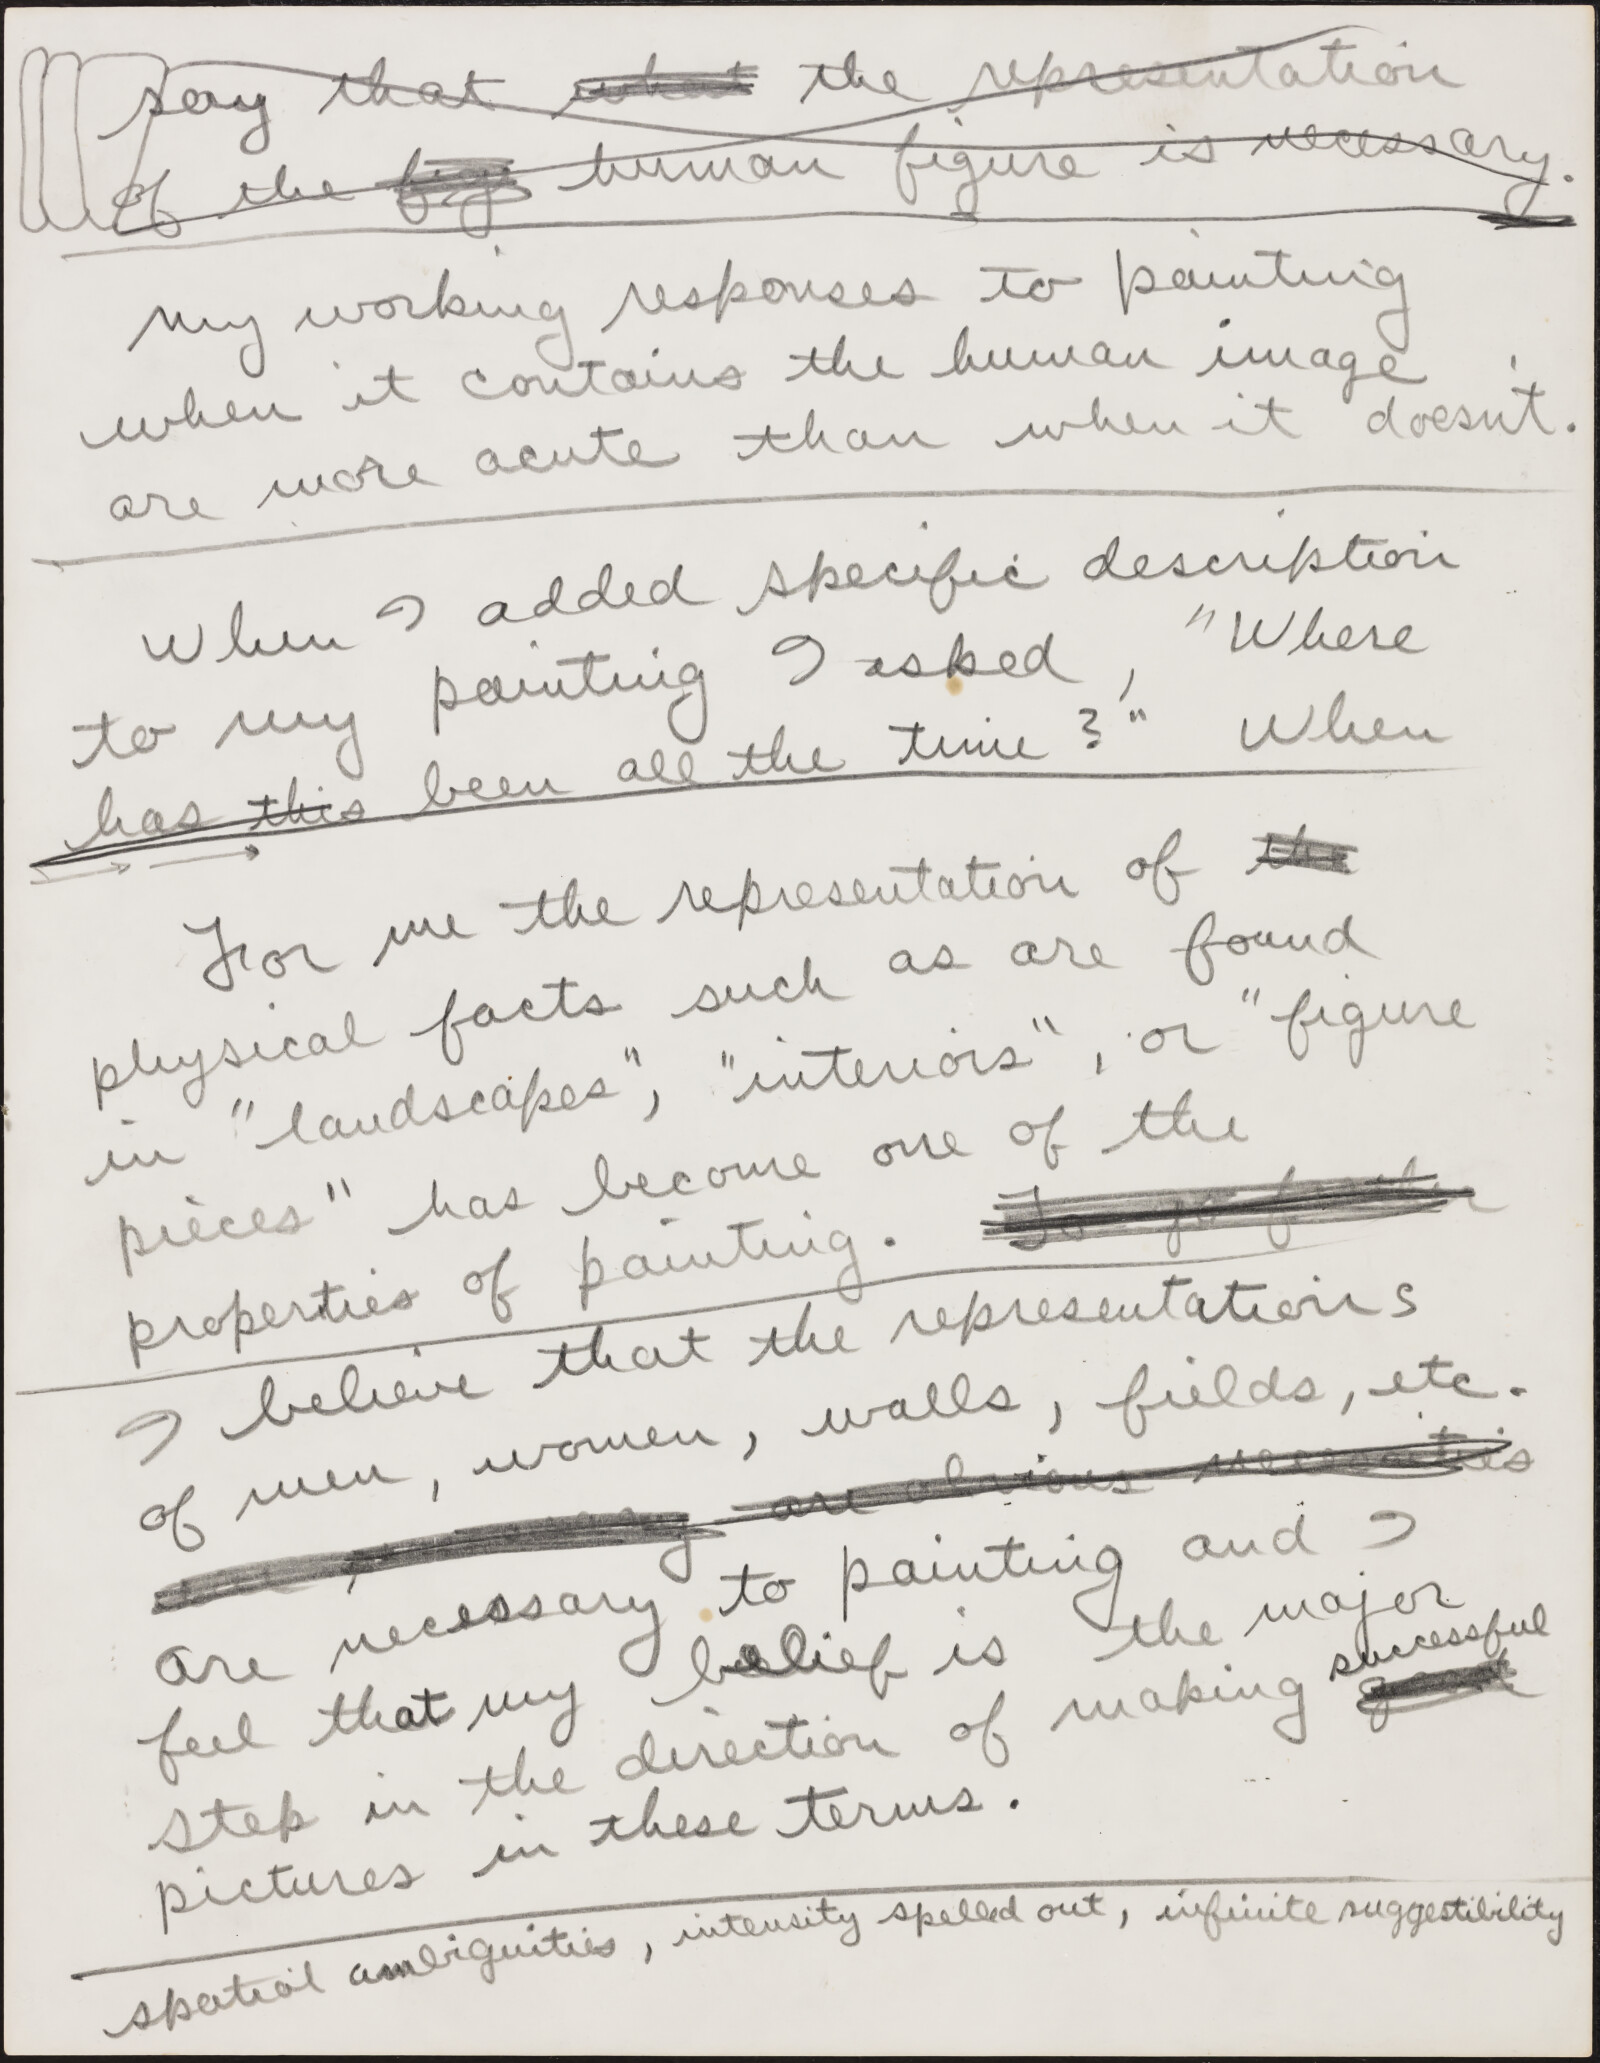 say that what the representation
of the fig human figure is necessary.
My working responses to painting
when it contains the human image
are more acute than when it doesn't.
When I added specific description
to my painting I asked, "Where
has this been all the time?" When
For me the representation of the
physical facts such as are found
in "landscapes", "interiors", or "figure
pieces" has become one of the
properties of painting. To go further
I believe that the representations
of men, women, walls, fields, etc.
are obvious necessities
are necessary to painting and I
feel that my belief is the major
successful
step in the direction of making
pictures in these terms.
spatial ambiguities, intensity spelled out, infinite suggestibility